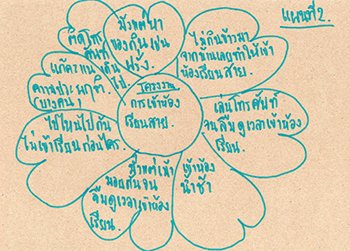 แผนที่ 2.
มัวแต่หา
ของกินเช่น
ฝรั่ง.
ติดโทร
ศัพท์
ความประพฤติ.
(บางคน)
ไม่กินข้าวมา
จากบ้านเลยทำให้เข้า
ห้องเรียนสาย.
โครงงาน
การเข้าห้อง
เรียนสาย.
เล่นโทรศัพท์
จนลืมดูเวลาเข้าห้อง
เรียน.
ไปไหนไปกัน
ไม่เข้าเรียนก่อนใคร.
มัวแต่เม้า
มอยกันจน
ลืมดูเวลาเข้าห้อง
เรียน.
เข้าห้อง
น้ำช้า